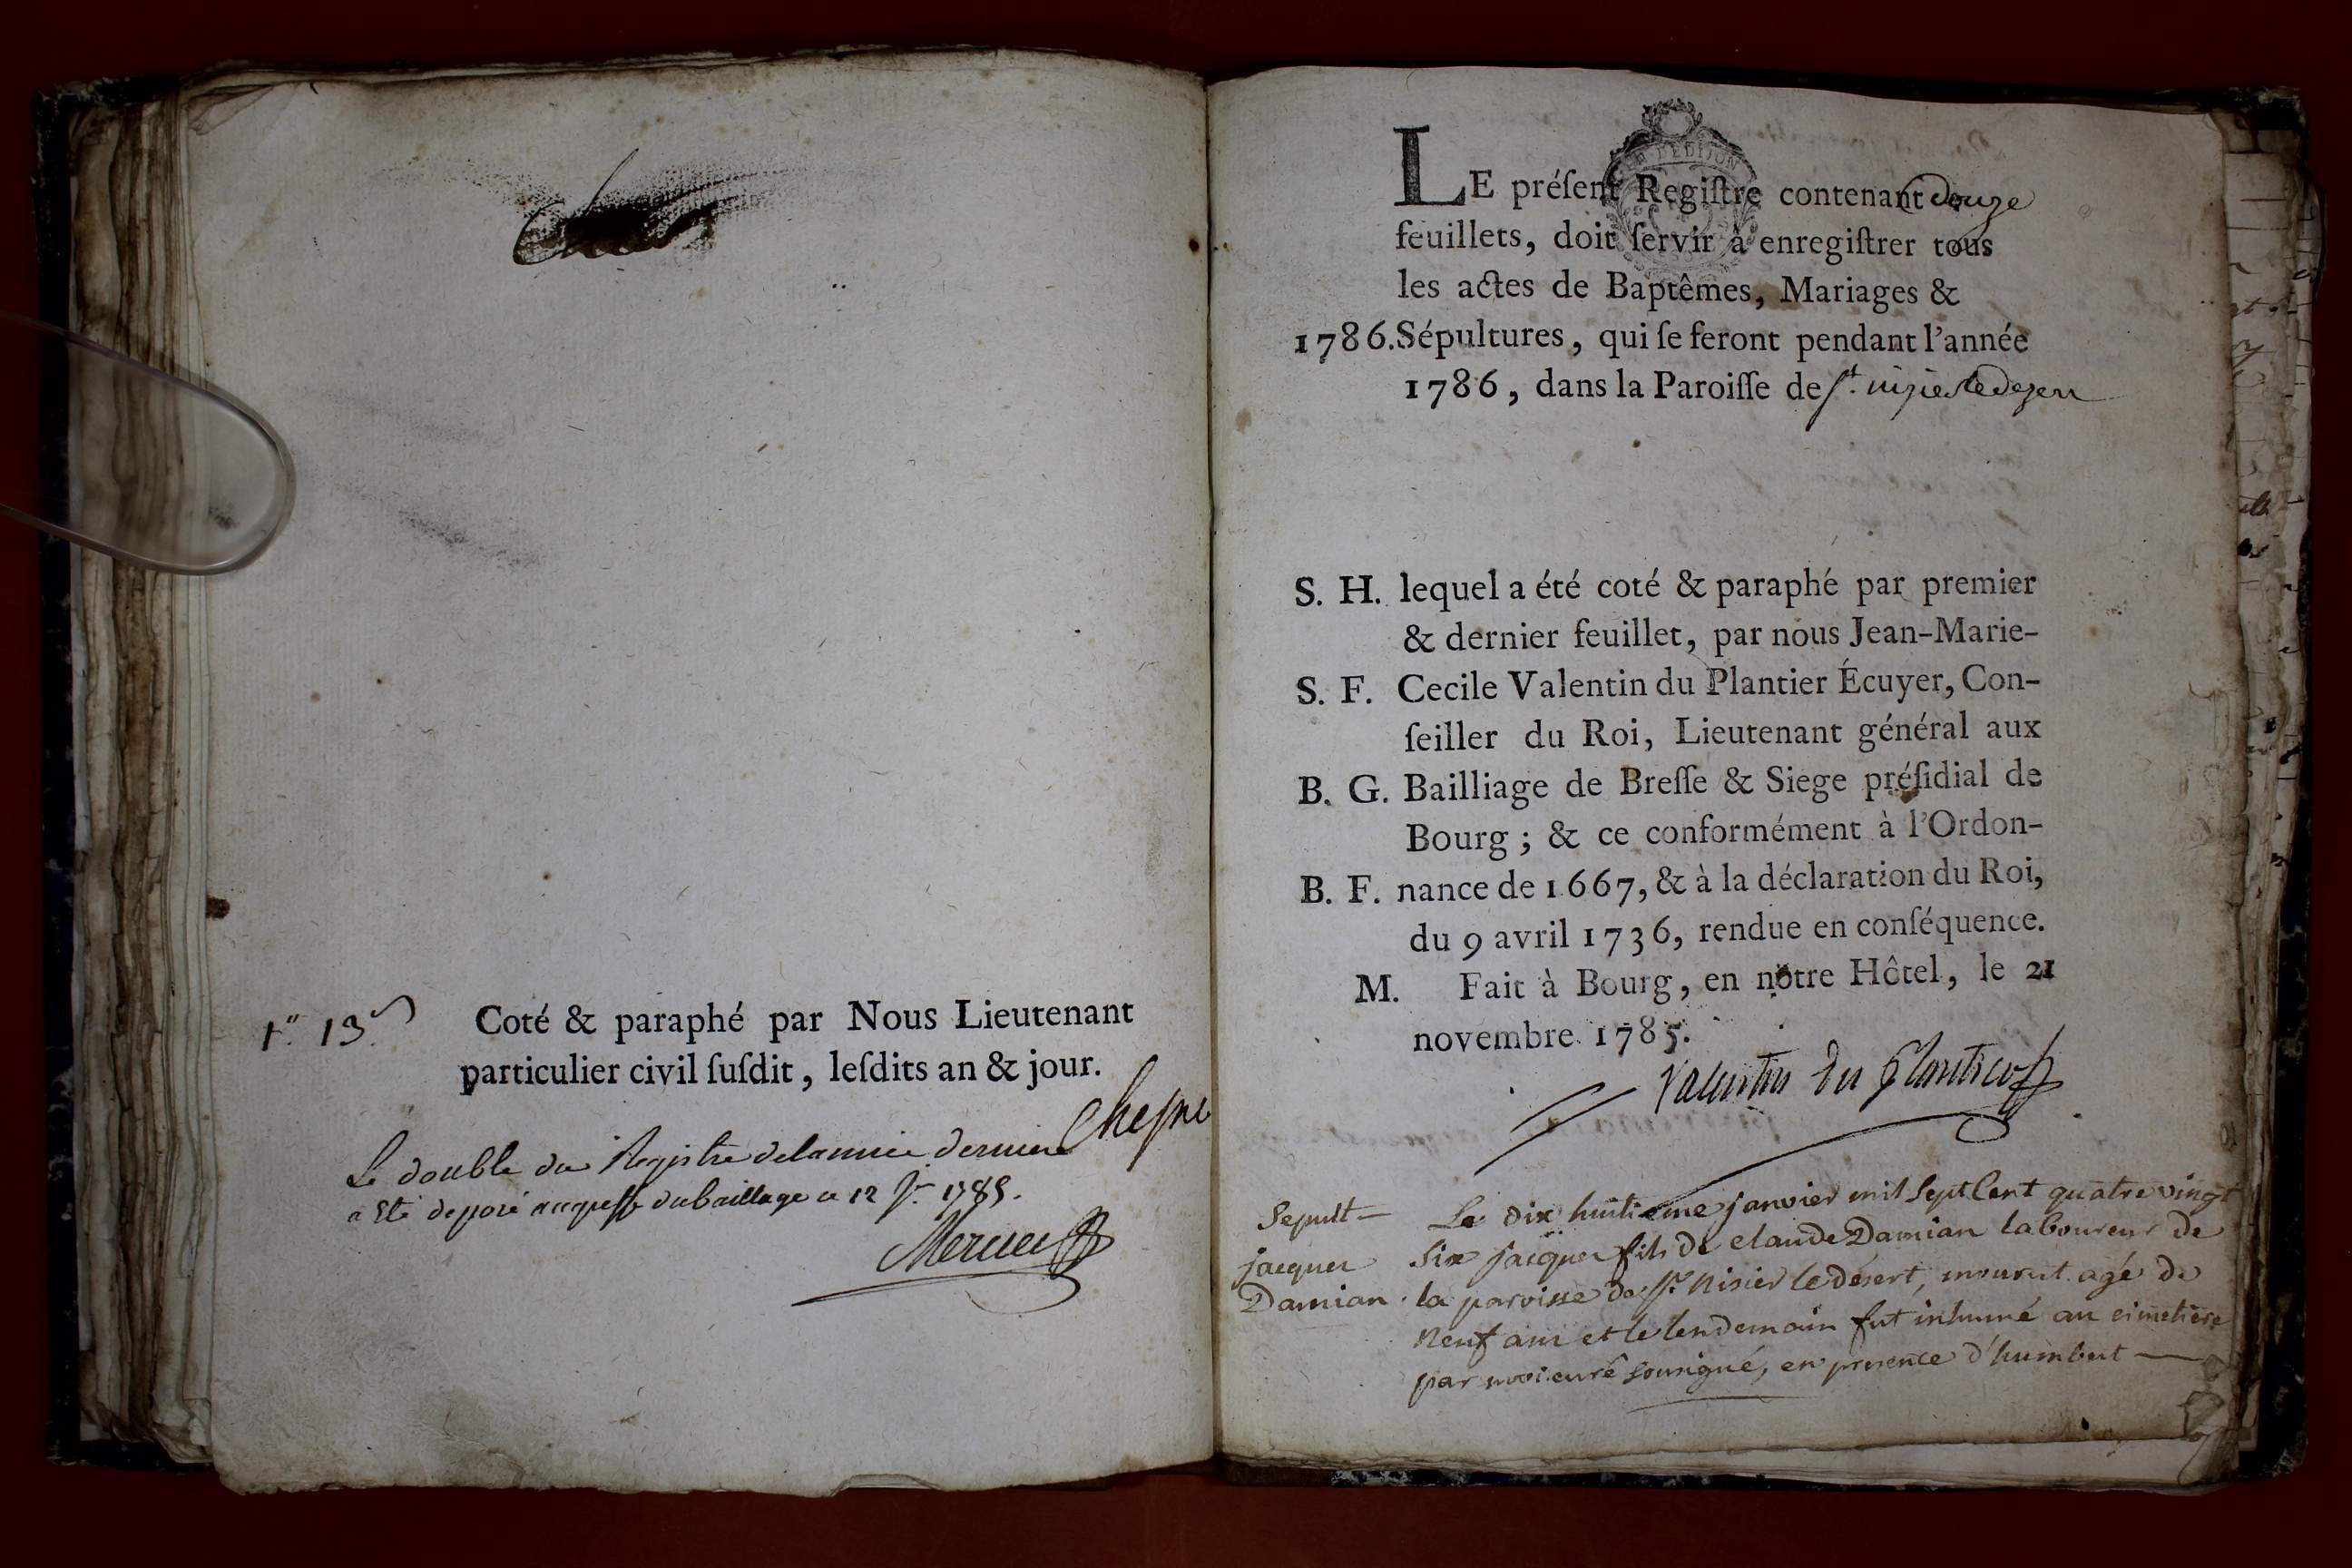 Coté & paraphé par Nous Lieutenant
particulier civil ſuſdit, leſdits an & jour.
Le double du Registre de lannée derniere
a Eté deposé au greffe du bailliage ce 12 1785.
LE préſent Regiſtre contenant douze
feuillets, doit ſervir à enregiſtrer tous
les actes de Baptêmes, Mariages &
1786. Sépultures, qui ſe feront pendant l'année
1786, dans la Paroiſſe de St. nizier le dezert
S. H. lequel a été coté & paraphé par premier
& dernier feuillet, par nous Jean-Marie-
S. F. Cecile Valentin du Plantier Écuyer, Con-
ſeiller du Roi, Lieutenant général aux
B. G. Bailliage de Breſſe & Siege préſidial de
Bourg ; & ce conformément à l'Ordon-
B. F. nance de 1667, & à la déclaration du Roi,
du 9 avril 1736, rendue en conſéquence.
M. Fait à Bourg, en notre Hôtel, le 21
novembre 1785.
Valentin du Plantier
Sepult— Le dix huitieme janvier mil sept Cent quatre vingt
jacques Six jacques fils de claude Damian laboureur de
Damian. la paroisse de St. Nisier le désert, mourut agé de
neuf ans et le lendemain fut inhumé au cimetière
par moi curé sousigné, en presence d'humbert —